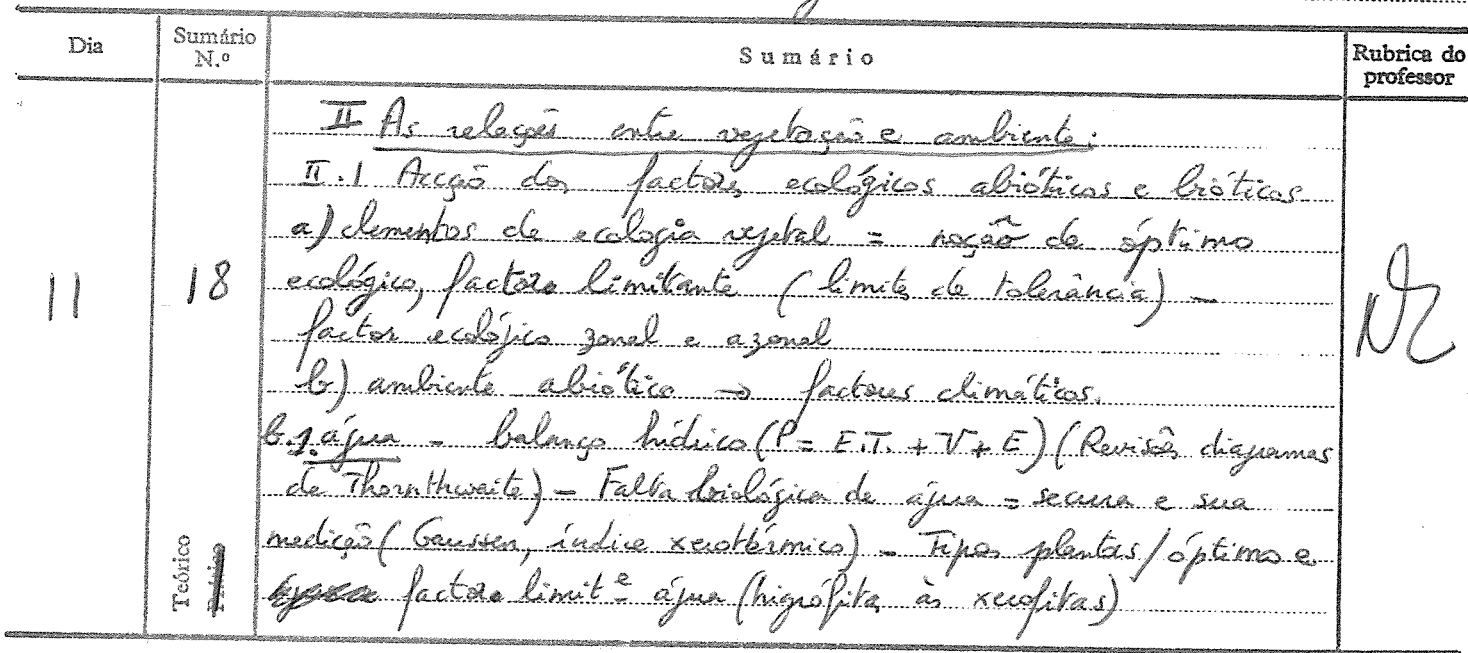 Dia Sumário N.º Sumário Rubrica do professor
II As relações entre vegetação e ambiente:
II.1 Acção dos factores ecológicos abióticos e bióticos
a) elementos de ecologia vegetal = noção de óptimo
ecológico, factores limitante (limite de tolerância) -
factor ecológico zonal e azonal
11 18
b) ambiente abiótico → factores climáticos.
b.1. água - balanço hídrico (P = E.T. + V + E) (Revisões diagramas
de Thornthwaite) - Falta biológica de água = secura e sua
medição (Gaussen, índice xerotérmico) - Tipos plantas / óptimo e
factores limitᵉ água (higrófitas às xerofitas)
Teórico